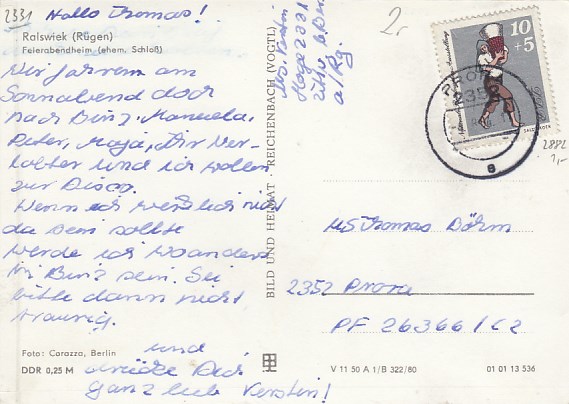 2331 Hallo Thomas!
Ralswiek (Rügen)
Feierabendheim (ehem. Schloß)
Wir fahren am
Sonnabend doch
nach Binz. Manuela,
Peter, Maja, Ihr Ver-
lobter und ich wollen
zur Disco.
Wenn ich wirklich nicht
da sein sollte
werde ich woanders
in Binz sein. Sei
bitte dann nicht
traurig.
und
drücke Dich
ganz lieb Kerstin!
Foto: Corazza, Berlin
DDR 0,25 M
BILD UND HEIMAT REICHENBACH (VOGTL)
Abs. Kerstin
2331
a/Rg.
2,-
10
+5
PRORA
2352
e
2882
1,-
US Thomas Böhm
2352 Prora
PF 26366/C2
V 11 50 A 1/B 322/80
01 01 13 536